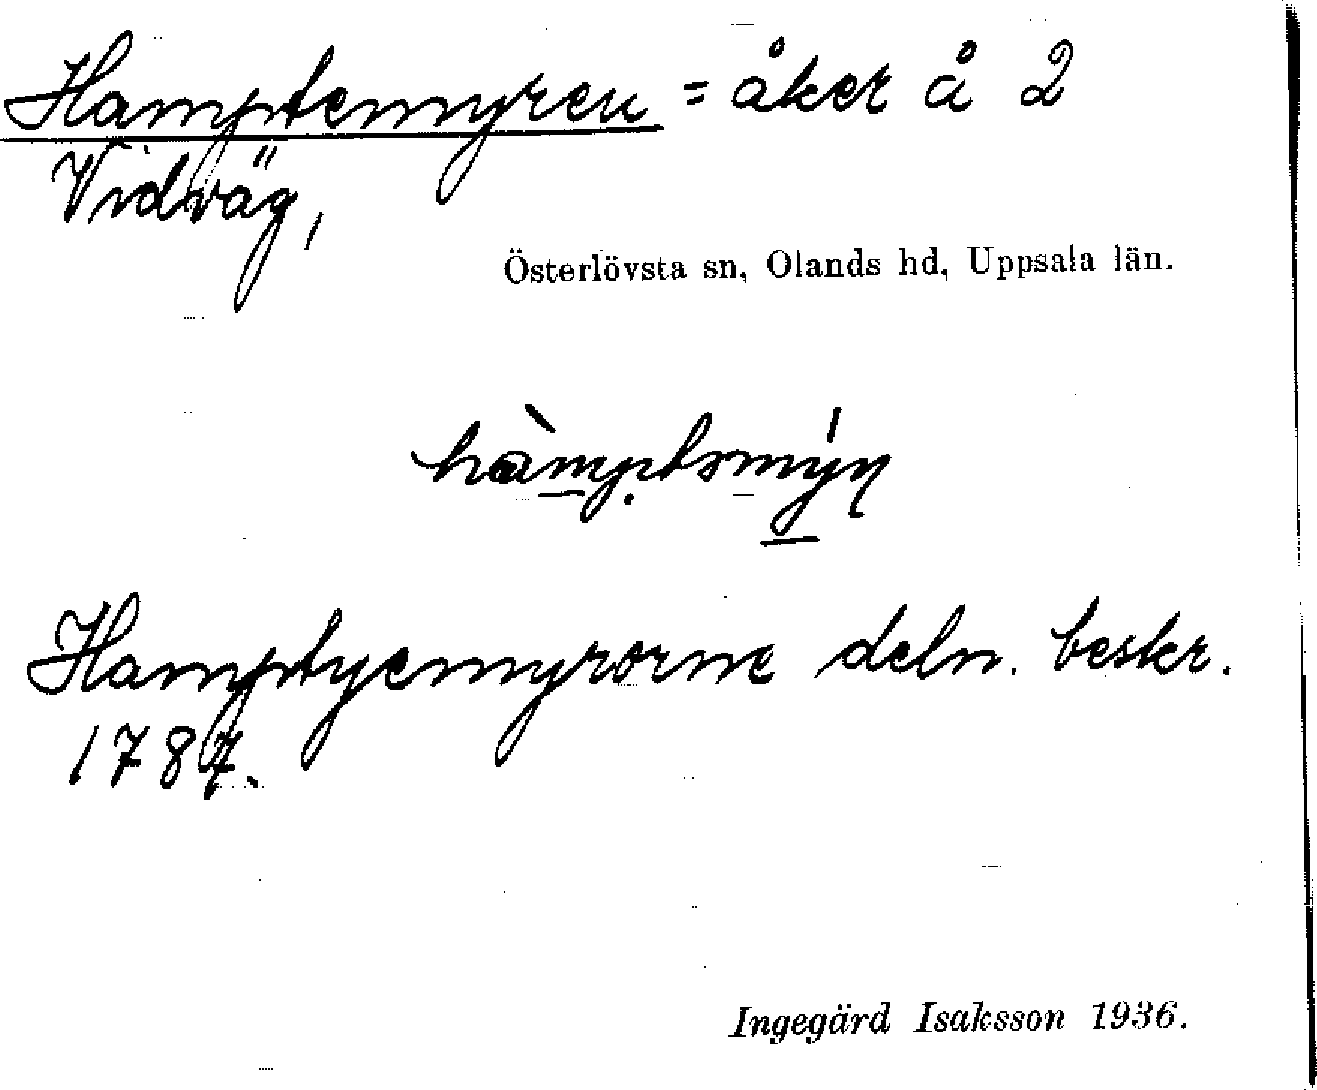 Hamptemyren = åker å 2
Vidväg,
Österlövsta sn, Olands hd, Uppsala län.
hàmptmýn
Hamptyemyrorne deln. beskr.
1787.
Ingegärd Isaksson 1936.